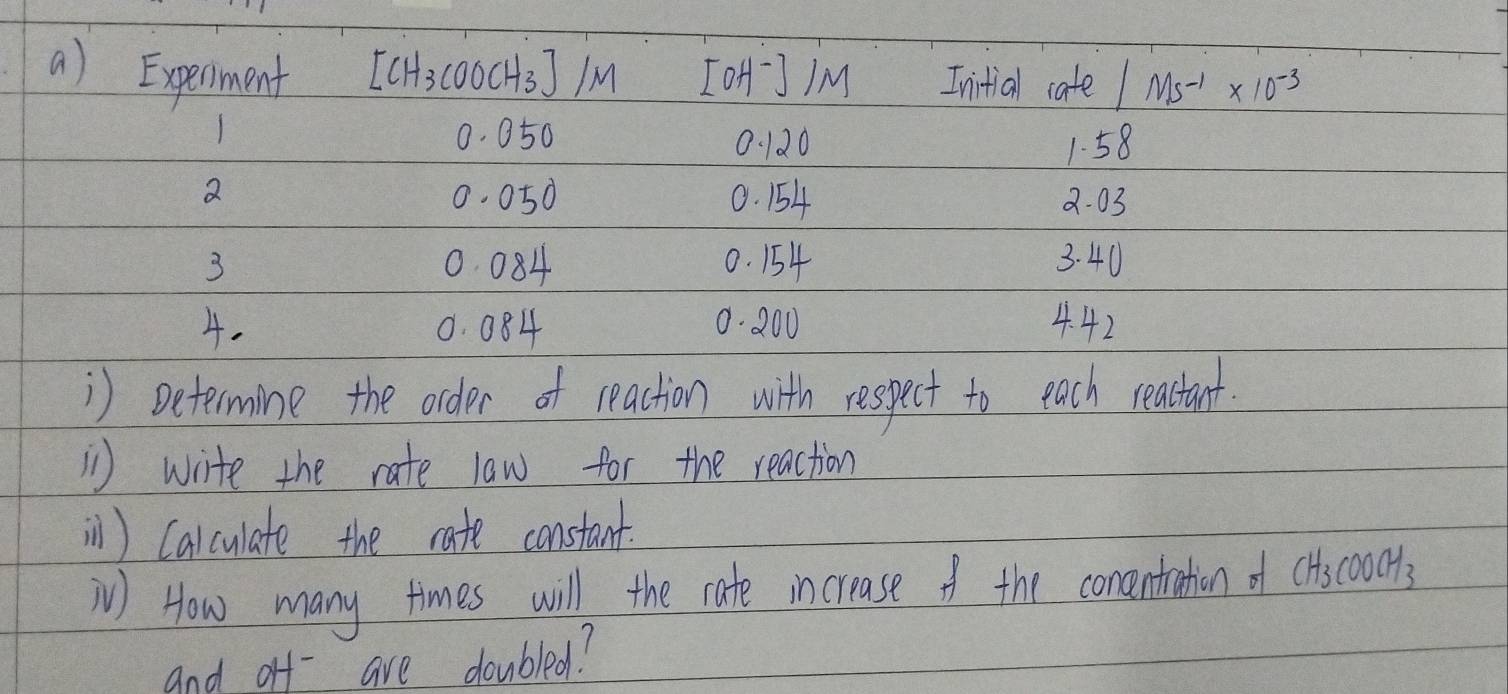 a) Experiment [CH3COOCH3] /M [OH-] /M Initial rate / Ms-1 x 10-3
1 0.050 0.120 1.58
2 0.050 0.154 2.03
3 0.084 0.154 3.40
4. 0.084 0.200 4.42
i) Determine the order of reaction with respect to each reactant.
ii) Write the rate law for the reaction
iii) Calculate the rate constant.
iv) How many times will the rate increase if the concentration of CH3COOCH3
and OH- are doubled?